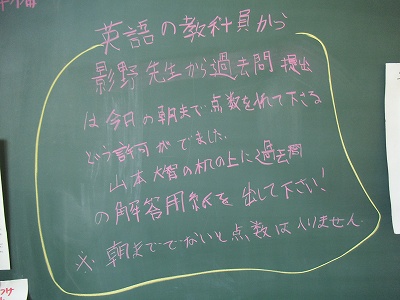 英語の教科員から
影野先生から過去問提出
は今日の朝まで点数を入れて下さる
という許可がでました。
山本大智の机の上に過去問
の解答用紙を出して下さい!
※朝まででないと点数は入りません。